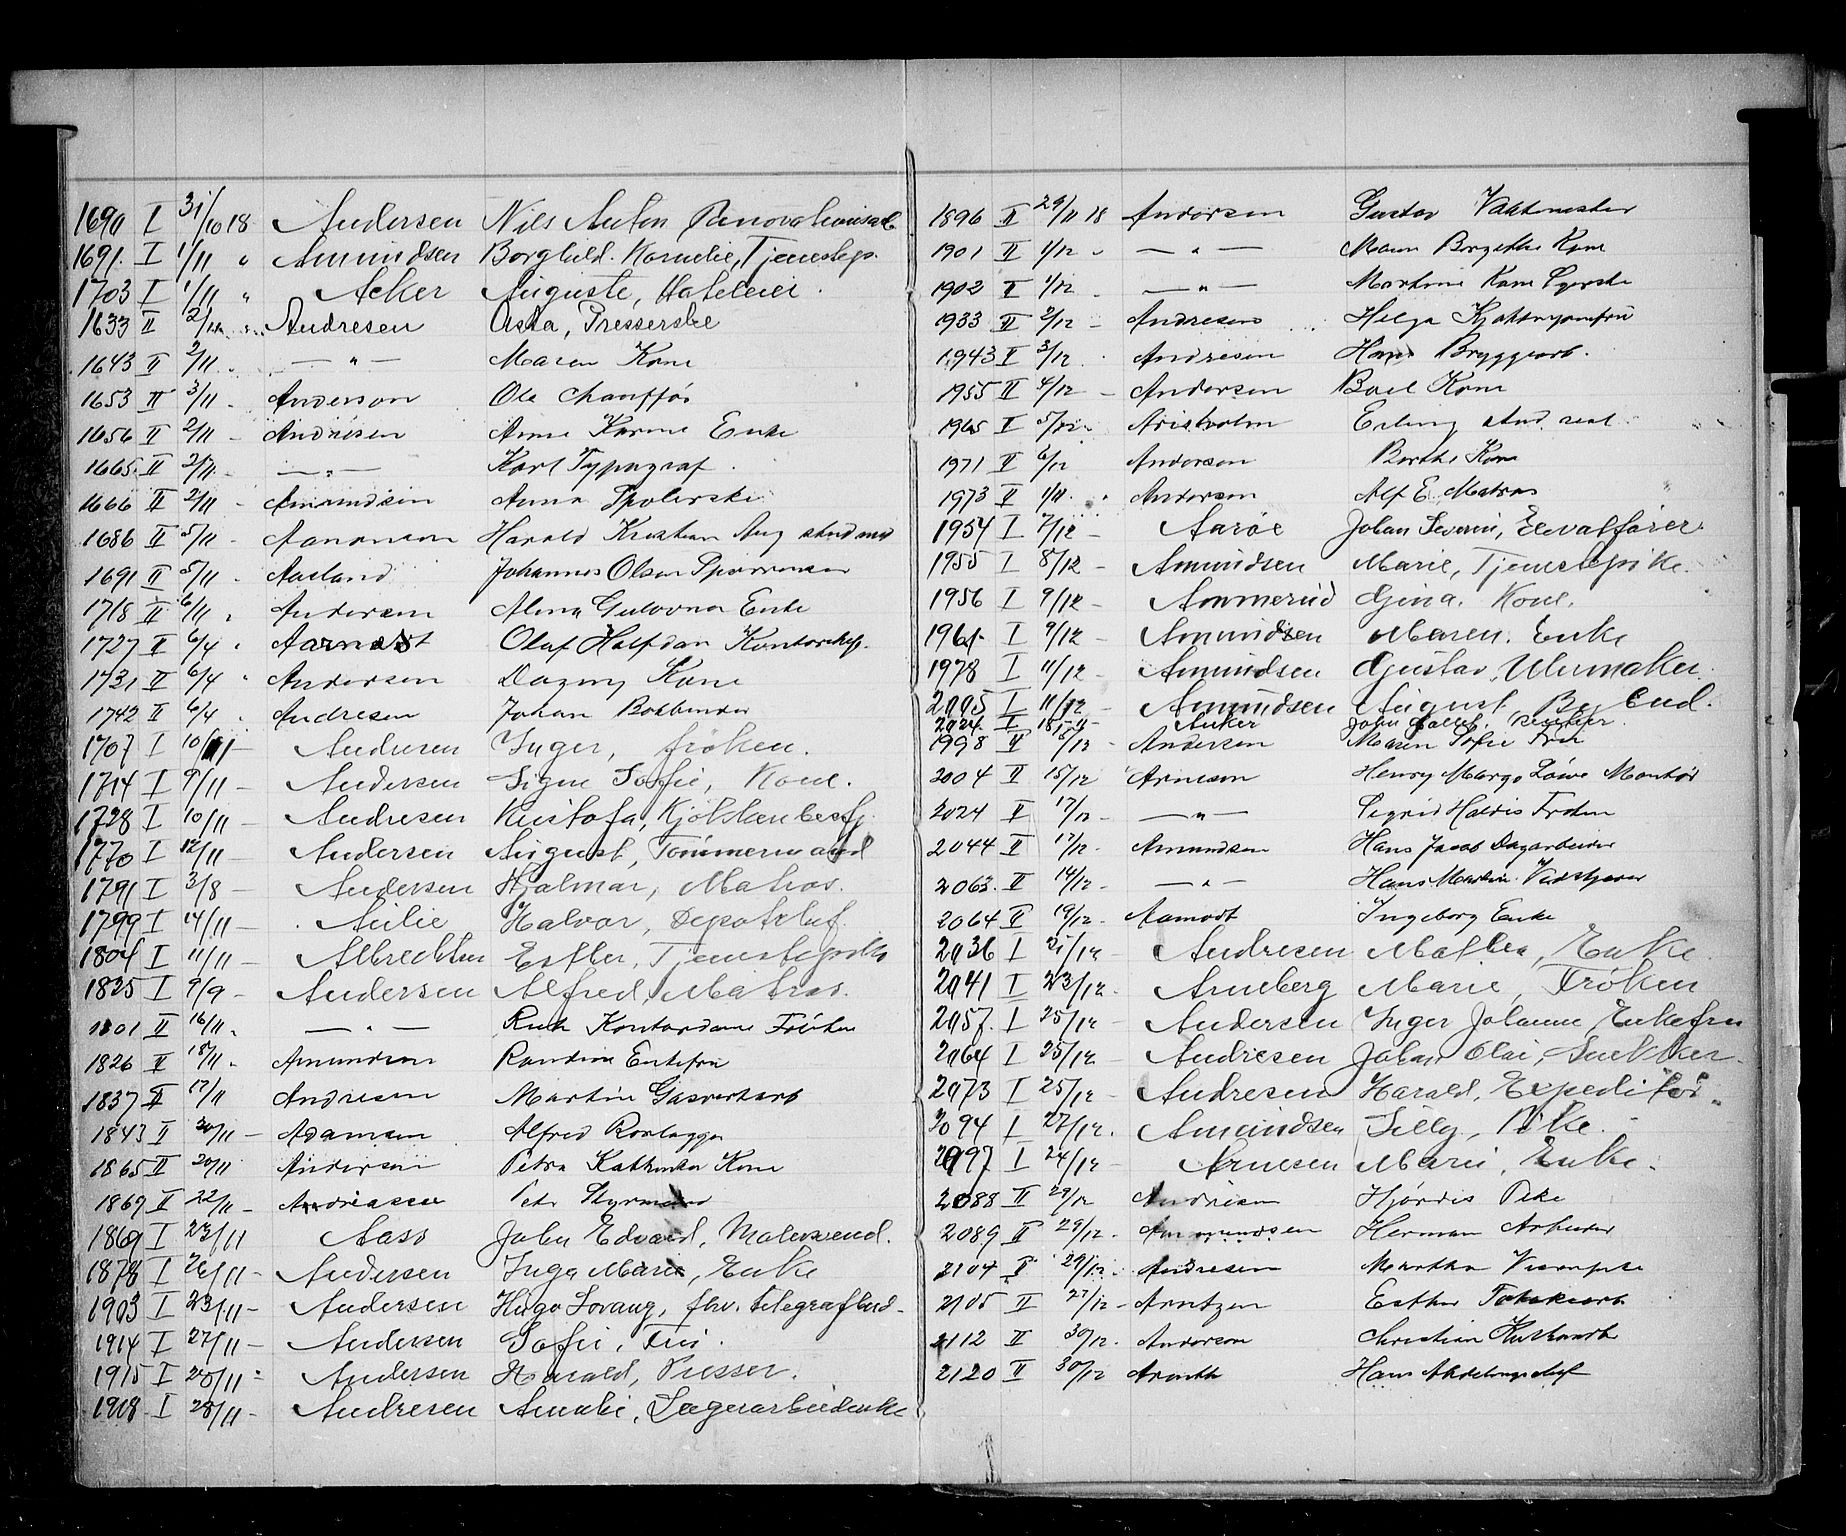 1690 I 31/10 18 Andersen Nils Anton Renovationsarb
1691. I 1/11 " Amundsen Borghild. Kornelie, Tjenestep.
1703 I 1/11 " Acker Auguste, Hoteleier.
1633 II 2/11 " Andresen Asta, Presserske
1643 II 2/11 — " — Maren Kone
1653 II 3/11 - Anderson Ole Chauffør
1656 II 2/11 - Andresen Anne Karine Enke
1665 II 2/11 - — " — Karl Typograf.
1666 II 2/11 - Amundsen Anna Spolerske
1686 II 5/11 - Aanonsen Harald Kristian Aug stud med
1691 II 5/11 - Aasland Johannes Olsen
1718 II 6/11 Andersen Enke
1727 II 6/4 Olaf Halfdan
1731 II 6/4 " Andersen Dagny Kone
1742 II 6/4 Andresen Johan Bokbinder
1707 I 10/11 - Andersen Inger, frøken.
1714 I 9/11 - Andersen Signe Sofie, Kone.
1728 I 10/11 - Andresen Kristofa, Kjøkkenbestj
1770 I 12/11 - Andersen August, Tømmermand
1791 I 3/8 - Andersen Hjalmar, Matros.
1799 I 14/11 - Aulie Halvor, Depotchef.
1804 I 11/11 - Albrechtsen Esther, Tjenestepike
1825 I 9/9 - Andersen Alfred, Matros.
1801 II 16/11 — " — Ruth Kontordame Frøken
1826 II 18/11 Amundsen Randine Enkefru
1837 II 17/11 Andresen Martin Gasverksarb
1843 II 20/11 - Adamsen Alfred Rørlegger
1865 II 20/11 Andersen Petra Kathinka Kone
1867 II 22/11 - Andreassen Petr Styrmand
1869 I 23/11 Aass John Edvard, Malersvend.
1878 I 26/11 - Andersen Inga Marie, Enke
1903 I 23/11 - Andersen Hugo fhv. telegrafbud -
1914 I 27/11 - Andersen Sofie, Fru.
1915 I 20/11 - Andersen Harald, Presser.
1918 I 28/11 - Andresen Amalie, Lagerarbeiderske
1896 II 29/11 18 Andersen Gustav Vaktmester
1901 II 1/12 — " — Maren Birgithe Kone
1902 II 1/12 — " — Martine Kone
1933 II 2/12 - Andresens Helga
1943 I 3/12 Andresen Hans Bryggearb.
1955 II 4/12 - Andersen Boel Kone
1965 I 5/12 - Aristholm Erling stud. real
1971 II 6/12 Anderson Berthe Kone
1973 II 1/11 Anderson Alf E. Matros
1954 I 7/12 - Aarøe Johan Severin, Elevatfører
1955 I 8/12 - Amundsen Marie, Tjenestepike.
1956 I 9/12 - Ammerud Gina. Kone.
1961 I 9/12 - Amundsen Maren. Enke
1978 I 11/12 - Amundsen Gustav, Uhrmaker.
2005 I 11/12 - Amundsen August, Bybud.
2024 I Anker John
1998 II 6/12 - Andersen Maren Sofie Fru
2004 II 15/12 Arneson Henry Montør
2024 II 17/12 — " — Sigrid Haldis Frøken
2044 II 17/12 - Amundsen Hans Jacob Dagarbeider
2063. II 14/12 - — " — Hans Martin
2064 II 19/12 - Aamodt Ingeborg Enke
2036 I 21/12 - Andresen Mathea, Enke.
2041 I 23/12 - Arneberg Marie, Frøken
2057. I 25/12 - Andersen Inger Johanne, Enkefru
2064 I 25/12 - Andresen Johan Olai, Snekker.
2073 I 25/12 - Andresen Harald, Expeditør.
2094 I 27/12. Amundsen Silly, Pike.
2097 I 24/12 - Arnesen Marie, Enke.
2088 II 29/12 Andresen Hjørdis Pike
2089 II 29/12. Ammundsen Herman Arbeider
2104 II 29/12 Andresen Martha
2105 II 27/12 - Arntzen Esther
2112 II 30/12. Anderson Christian
2120 II 30/12 Hans Afdelingschef